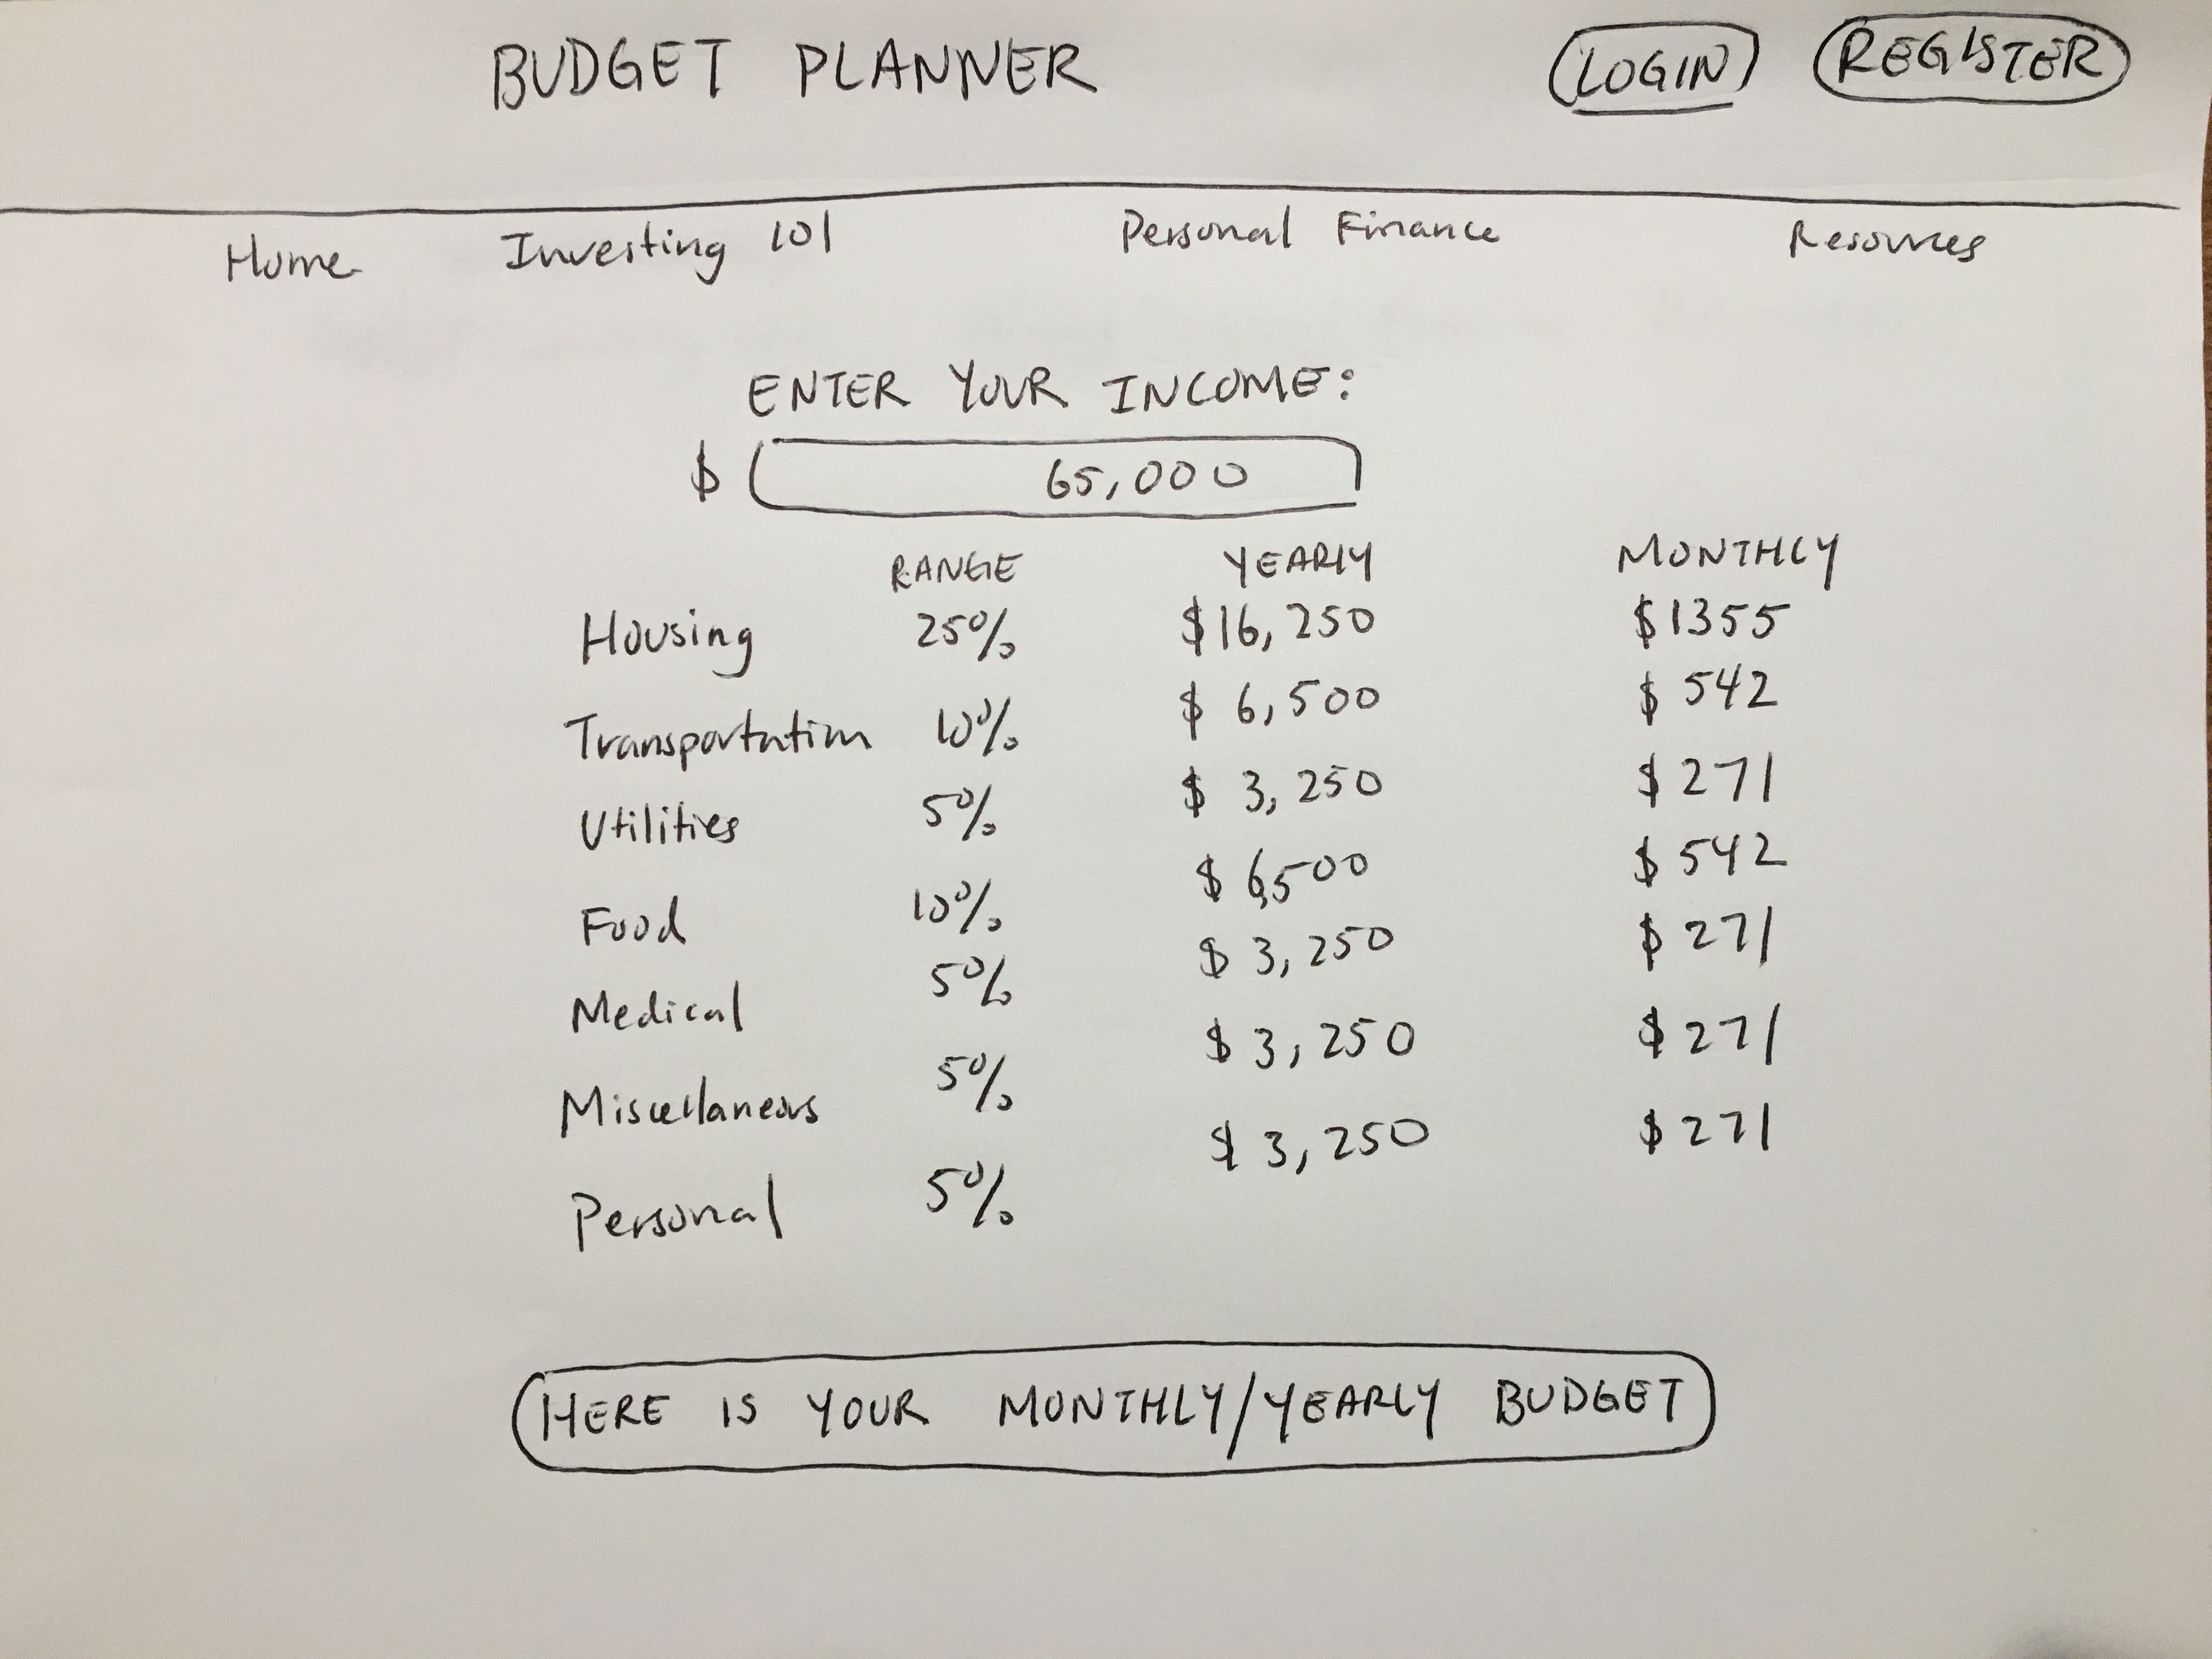 BUDGET PLANNER LOGIN REGISTER
Home Investing 101 Personal Finance Resources
ENTER YOUR INCOME:
$ 65,000
RANGE YEARLY MONTHLY
Housing 25% $16,250 $1355
Transportation 10% $6,500 $542
Utilities 5% $3,250 $271
Food 10% $6,500 $542
Medical 5% $3,250 $271
Miscellaneous 5% $3,250 $271
Personal 5% $3,250 $271
HERE IS YOUR MONTHLY/YEARLY BUDGET